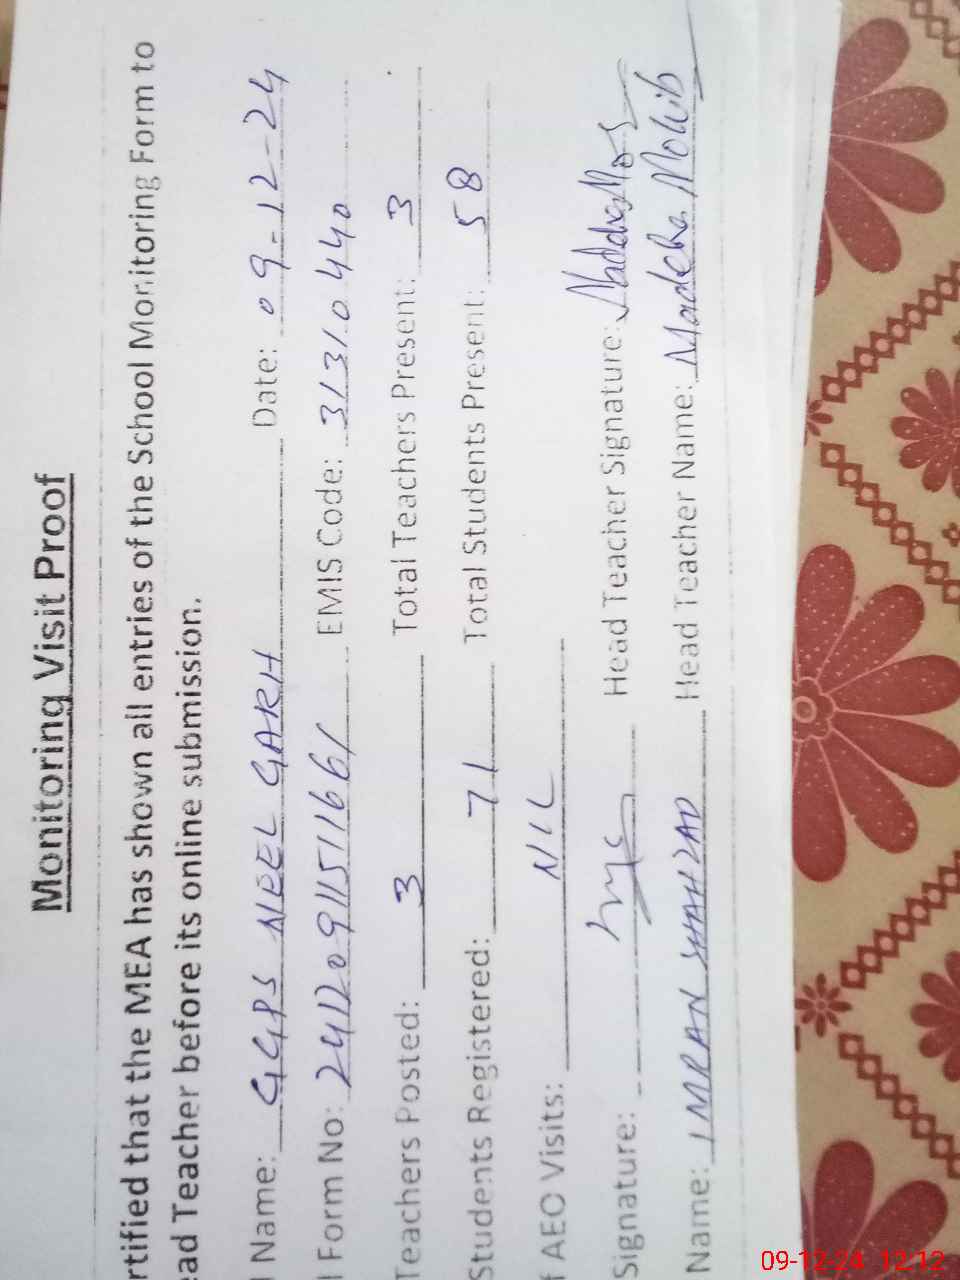 Monitoring Visit Proof
rtified that the MEA has shown all entries of the School Monitoring Form to
ead Teacher before its online submission.
l Name: GGPS NEEL GARH Date: 09-12-24
l Form No: 2411209115111661 EMIS Code: 31310440
Teachers Posted: 3 Total Teachers Present: 3
Students Registered: 71 Total Students Present: 58
f AEO Visits: NIL
Signature: Head Teacher Signature:
Name: IMRAN SHAHZAD Head Teacher Name:
09-12-24 12:12